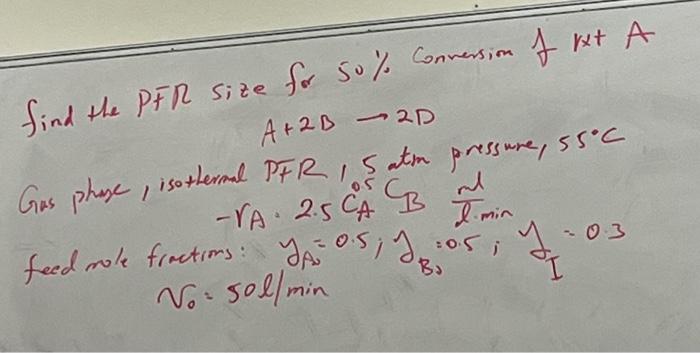 find the PFR size for 50% Conversion of rxt A
A+2B → 2D
Gas phase, isothermal PFR, 5 atm pressure, 55°C
-rA = 2.5 CA^0.5 CB mol/l.min
feed mole fractions: yA0 = 0.5; yB0 = 0.5; yI = 0.3
V0 = 50 l/min